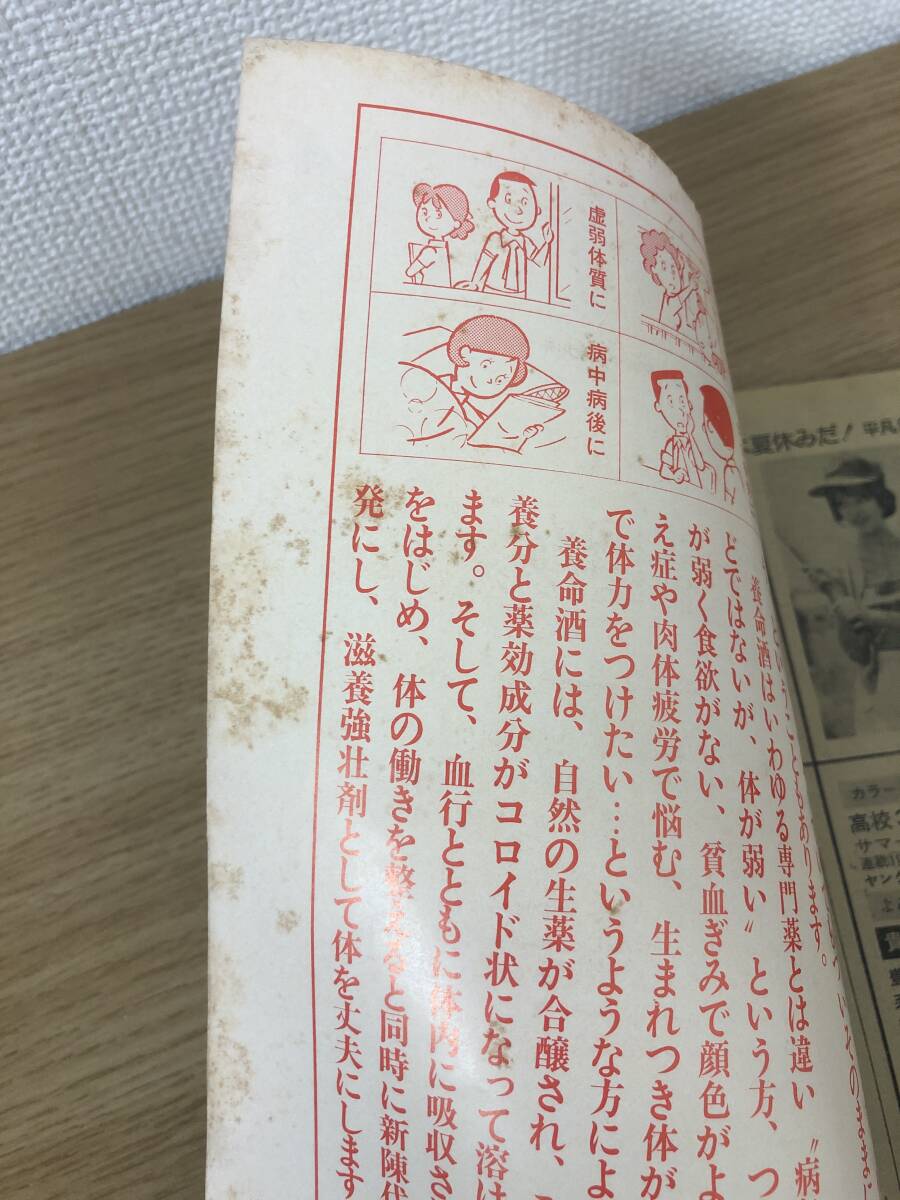 虚弱体質に
病中病後に
ということもあります。
養命酒はいわゆる専門薬とは違い〝病
どではないが、体が弱い〟という方、つ
が弱く食欲がない、貧血ぎみで顔色がよ
え症や肉体疲労で悩む、生まれつき体が
で体力をつけたい…というような方によ
養命酒には、自然の生薬が合醸され、
養分と薬効成分がコロイド状になって溶け
ます。そして、血行とともに体内に吸収さ
をはじめ、体の働きを整えると同時に新陳代
発にし、滋養強壮剤として体を丈夫にします
夏休みだ！平凡
カラー
高校
サマー
ヤング